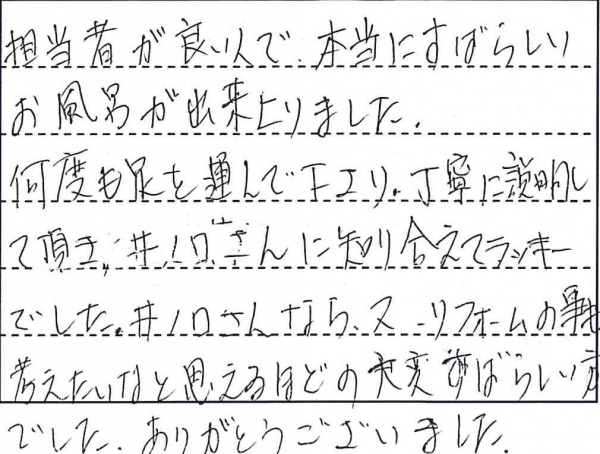 担当者が良い人で、本当にすばらしい
お風呂が出来上りました。
何度も足を運んで下さり、丁寧に説明し
て頂き、井ノ口さんに知り合えてラッキー
でした。井ノ口さんなら、又リフォームの事も
考えたいなと思えるほどの大変すばらしい方
でした。ありがとうございました。